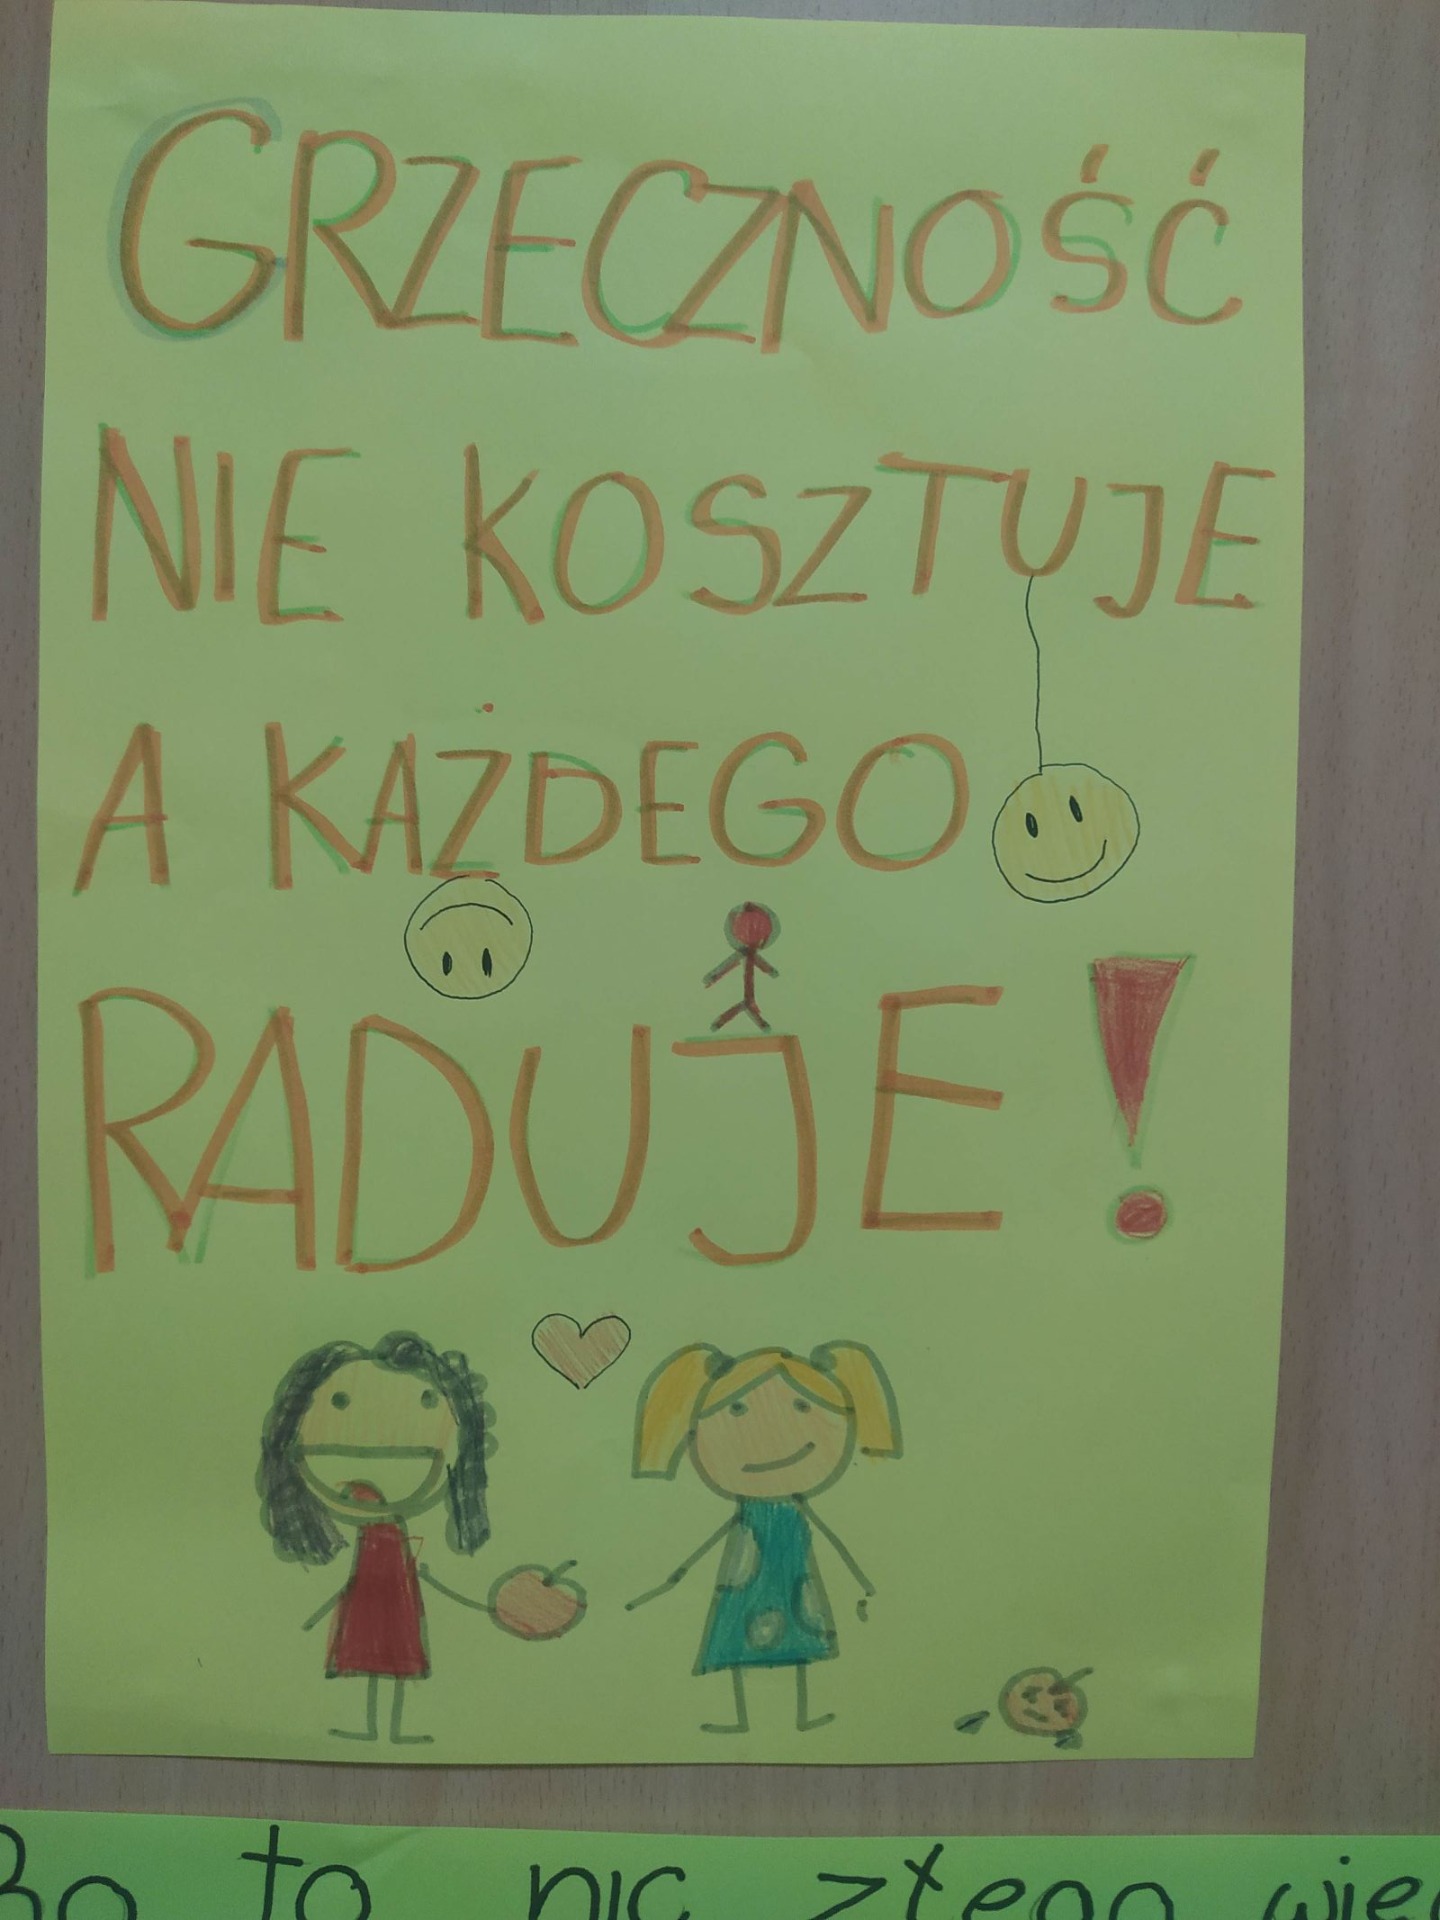 GRZECZNOŚĆ
NIE KOSZTUJE
A KAŻDEGO
RADUJE!
Bo to nic złego